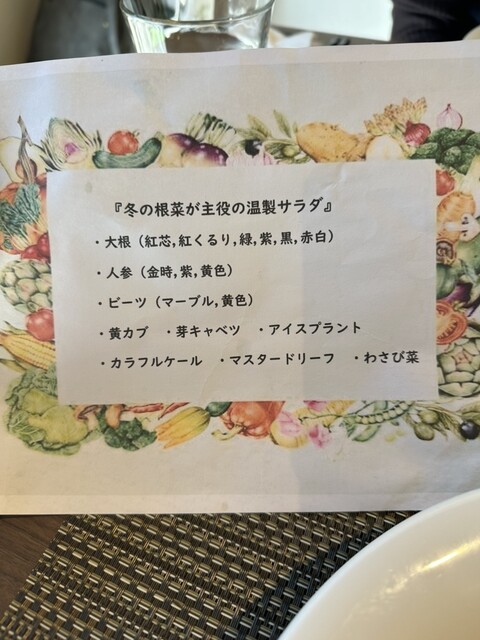 『冬の根菜が主役の温製サラダ』
・大根（紅芯,紅くるり,緑,紫,黒,赤白）
・人参（金時,紫,黄色）
・ビーツ（マーブル,黄色）
・黄カブ　・芽キャベツ　・アイスプラント
・カラフルケール　・マスタードリーフ　・わさび菜